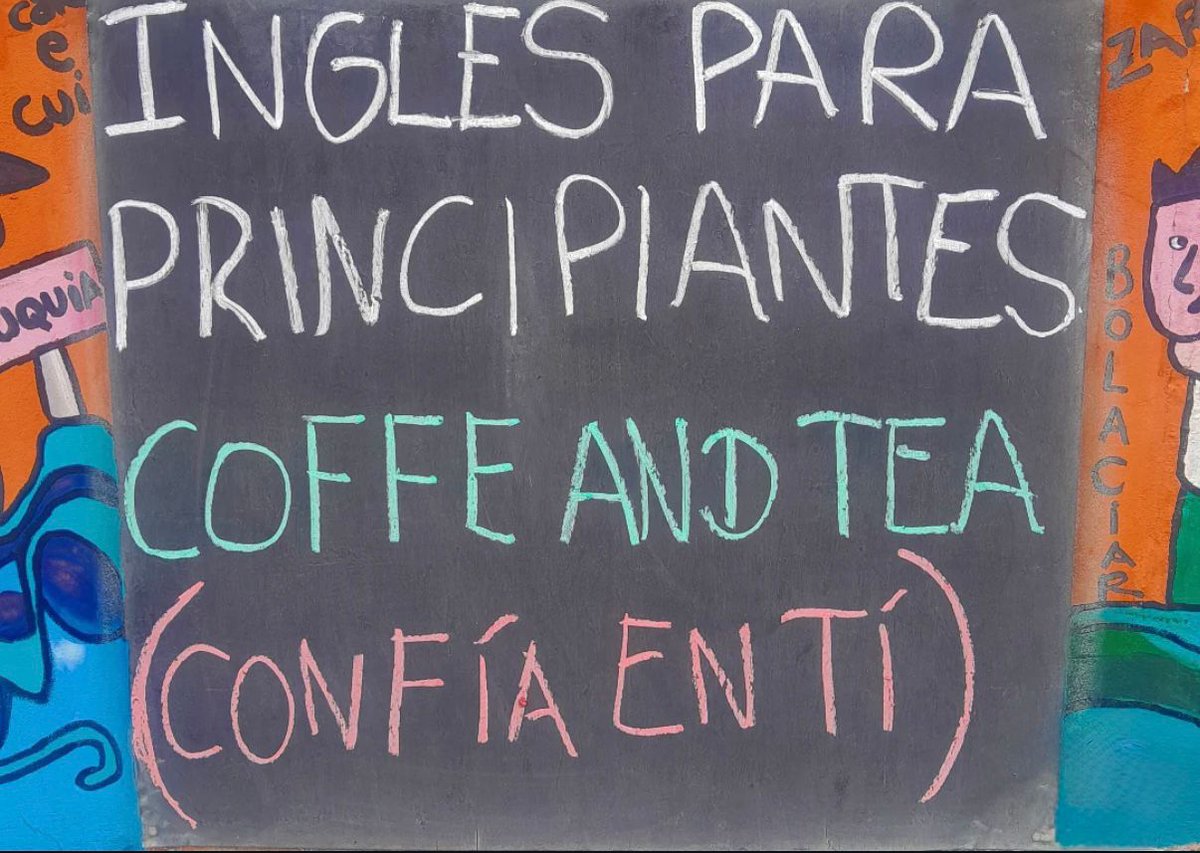 INGLES PARA
PRINCIPIANTES
COFFE AND TEA
(CONFÍA EN TÍ)
UQUiA
BOLACIAR
e
cui
ZAR